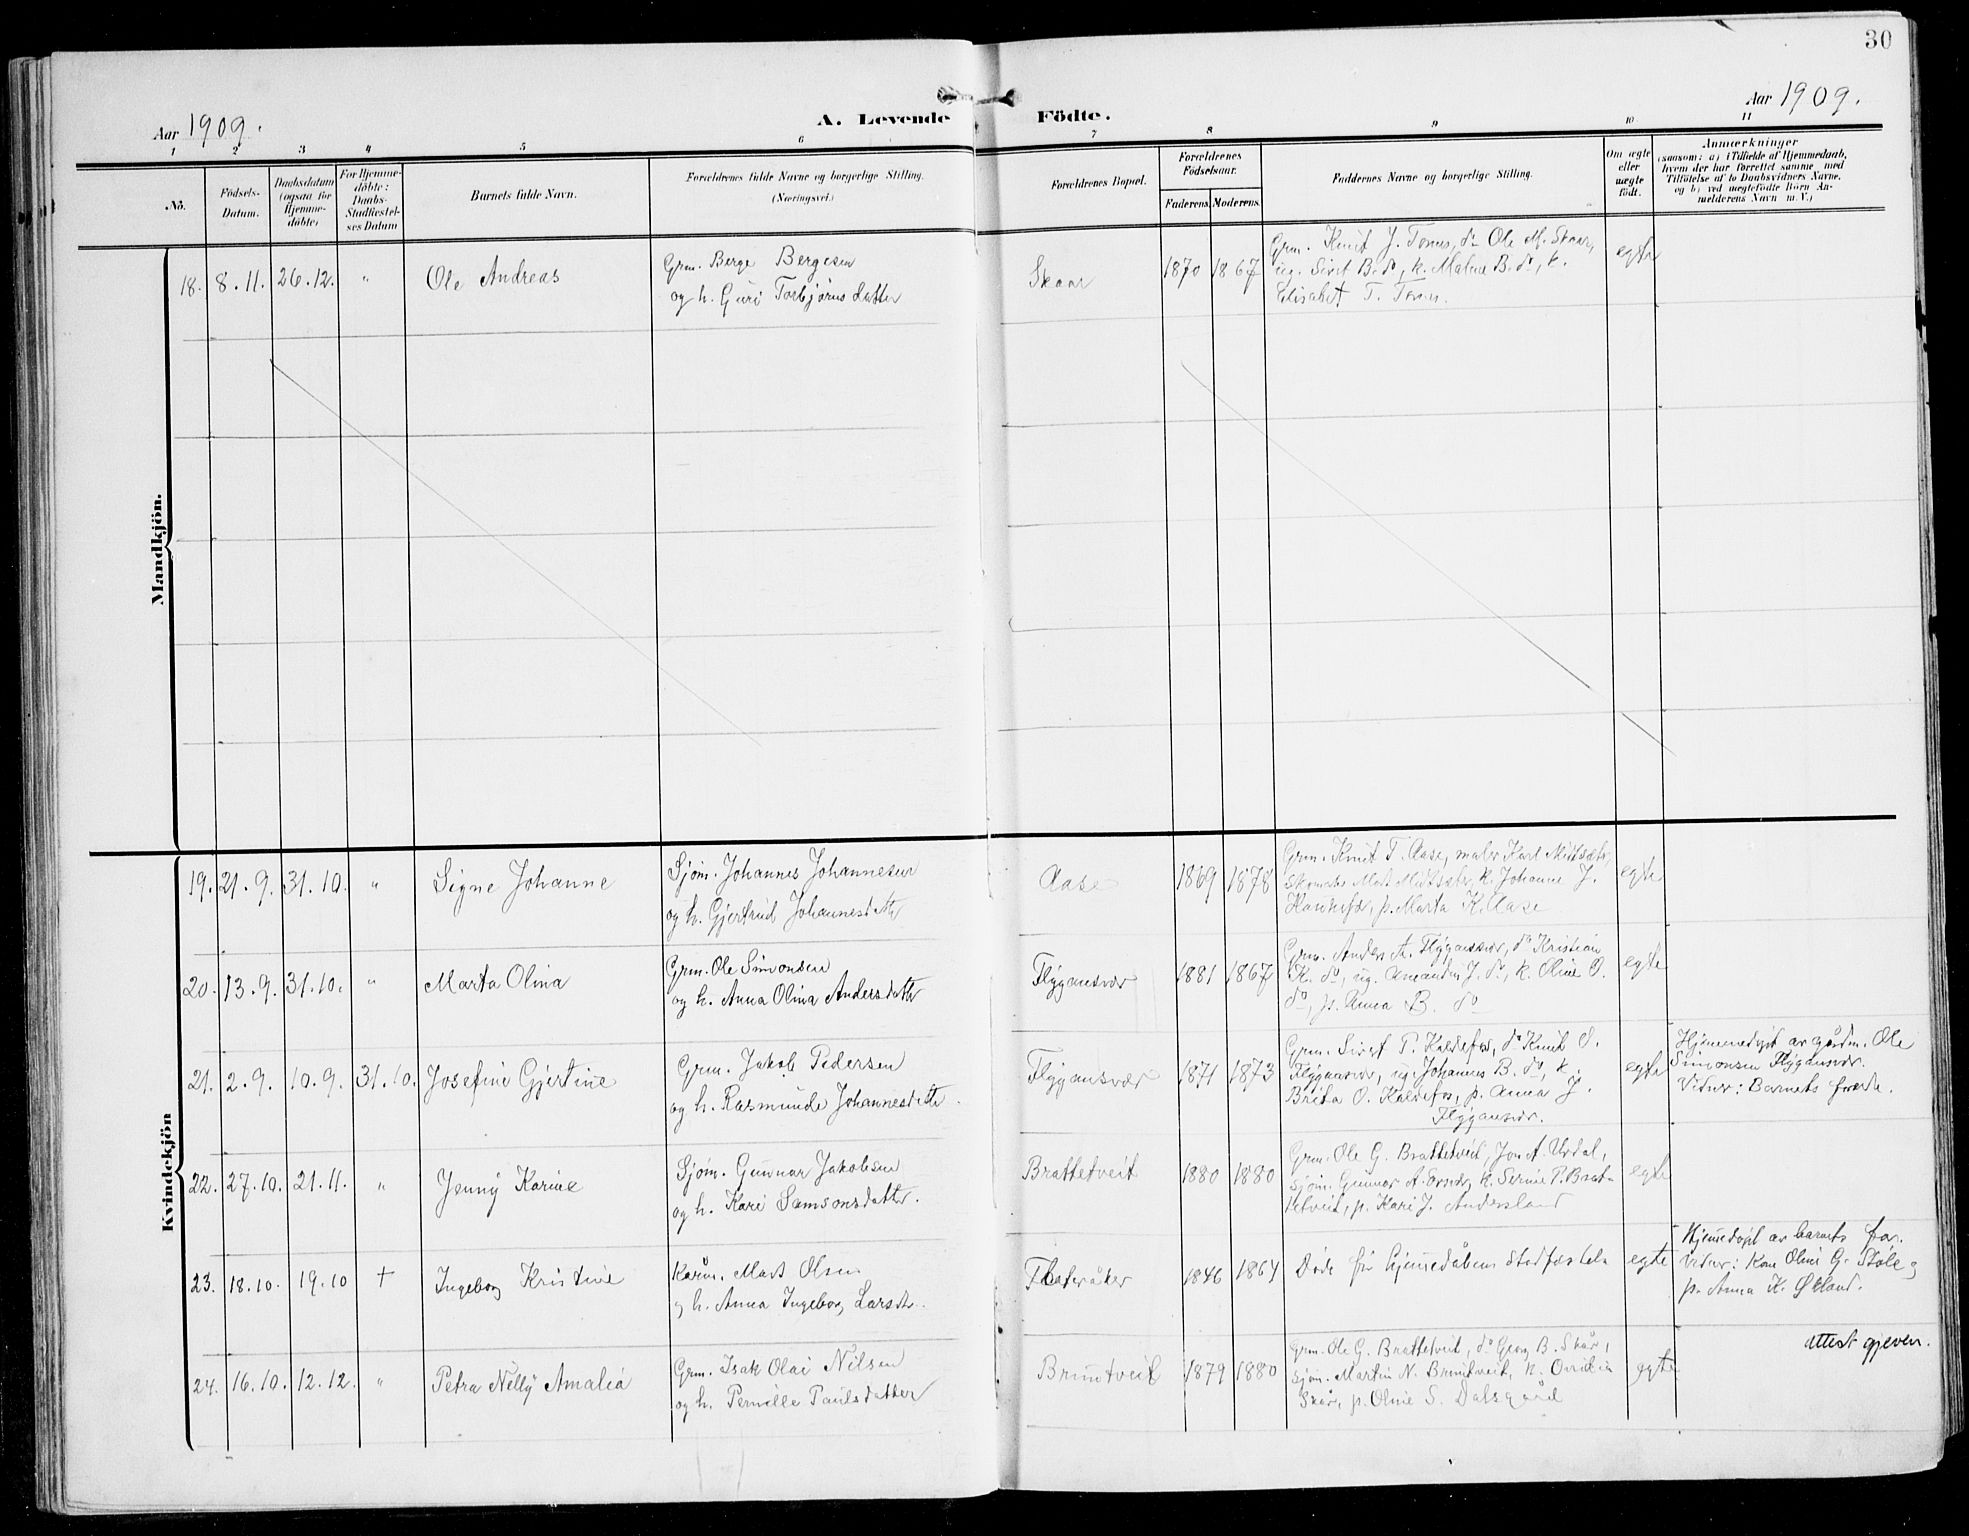 30
Aar 1909.
A. Levende Födte.
Aar 1909.
1 2 3 4 5 6 7 8 9 10 11
No.
Födsels-Datum.
Daabsdatum (ogsaa for Hjemme-döbte)
For Hjemme-döbte: Daabs-Stadfæstel-ses Datum
Barnets fulde Navn.
Forældrenes fulde Navne og borgerlige Stilling.
(Næringsvei.)
Forældrenes Bopæl.
Forældrenes Födselsaar.
Faderens. Moderens.
Faddernes Navne og borgerlige Stilling.
Om ægte eller uægte födt.
Anmærkninger
(saasom: a) i Tilfælde af Hjemmedaab,
hvem der har forrettet samme med
Tilföielse af to Daabsvidners Navne,
og b) ved uægtefödte Börn An-
melderens Navn m. V.)
Mandkjön.
18. 8.11. 26.12. " Ole Andreas
Grm. Berge Bergesen
og h. Guri Torbjørnsdatter
Skaar
1870 1867
Grm. Knut J. Tornes, do Ole M. Skaar,
ug. Sivert B. do, k. Malene B. do, k.
Elisabet T. Tornes.
egte
Kvindekjön
19. 21.9. 31.10. " Signe Johanne
Sjøm. Johannes Johannesen
og h. Gjertrud Johannesdtr
Aase
1869 1878
Grm. Knut T. Aase, maler Karl Midtsæter,
Mats Midtsæter, k. Johanne J.
p. Marta K. Aase
egte
20. 13.9. 31.10. " Marta Olina
Grm. Ole Simonsen
og h. Anna Olina Andersdatter
Flygansvær
1881 1867
Grm. Anders A. Flygansvær, do Kristian
K. do, ug. Amandus J. do, k. Oline O.
do, p. Anna B. do
egte
21. 2.9. 10.9. 31.10. Josefine Gjertine
Grm. Jakob Pedersen
og h. Rasmunde Johannesdtr.
Flygansvær
1871 1873
Grm. Sivert P. Kaldefos, do Knut O.
Flygansvær, ug. Johannes B. do, k.
Brita O. Kaldefos, p. Anna J.
Flygansvær.
egte
Hjemmedøpt av gårdm. Ole
Simonsen Flygansvær.
Vidner: Barnets forældre.
22. 27.10. 21.11. " Jenny Karine
Sjøm. Gunnar Jakobsen
og h. Kari Samsonsdatter.
Brattetveit
1880 1880
Grm. Ole G. Brattetveit, Jon A. Urdal,
sjøm. Gunnar A. k. Serine P. Brat-
tetveit, p. Kari J. Andersland
egte
23. 18.10. 19.10 † Ingeborg Kristine
Kårm. Mats Olsen
og h. Anna Ingeborg Larsdtr.
Flateråker
1846 1864
Døde før hjemmedåbens stadfæstelse
egte
Hjemmedøpt av barnets far.
Vidner: Kone Oline G. Støle og
p. Anna K. Økland.
24. 16.10. 12.12. " Petra Nelly Amalia
Grm. Isak Olai Nilsen
og h. Pernille Paulsdatter
Bruntveit
1879 1880
Grm. Ole G. Brattetveit, do Georg B. Skår,
sjøm. Martin N. Bruntveit, k. Ovidia
Skår, p. Oline S. Dalsgård
egte
attest gjeven.